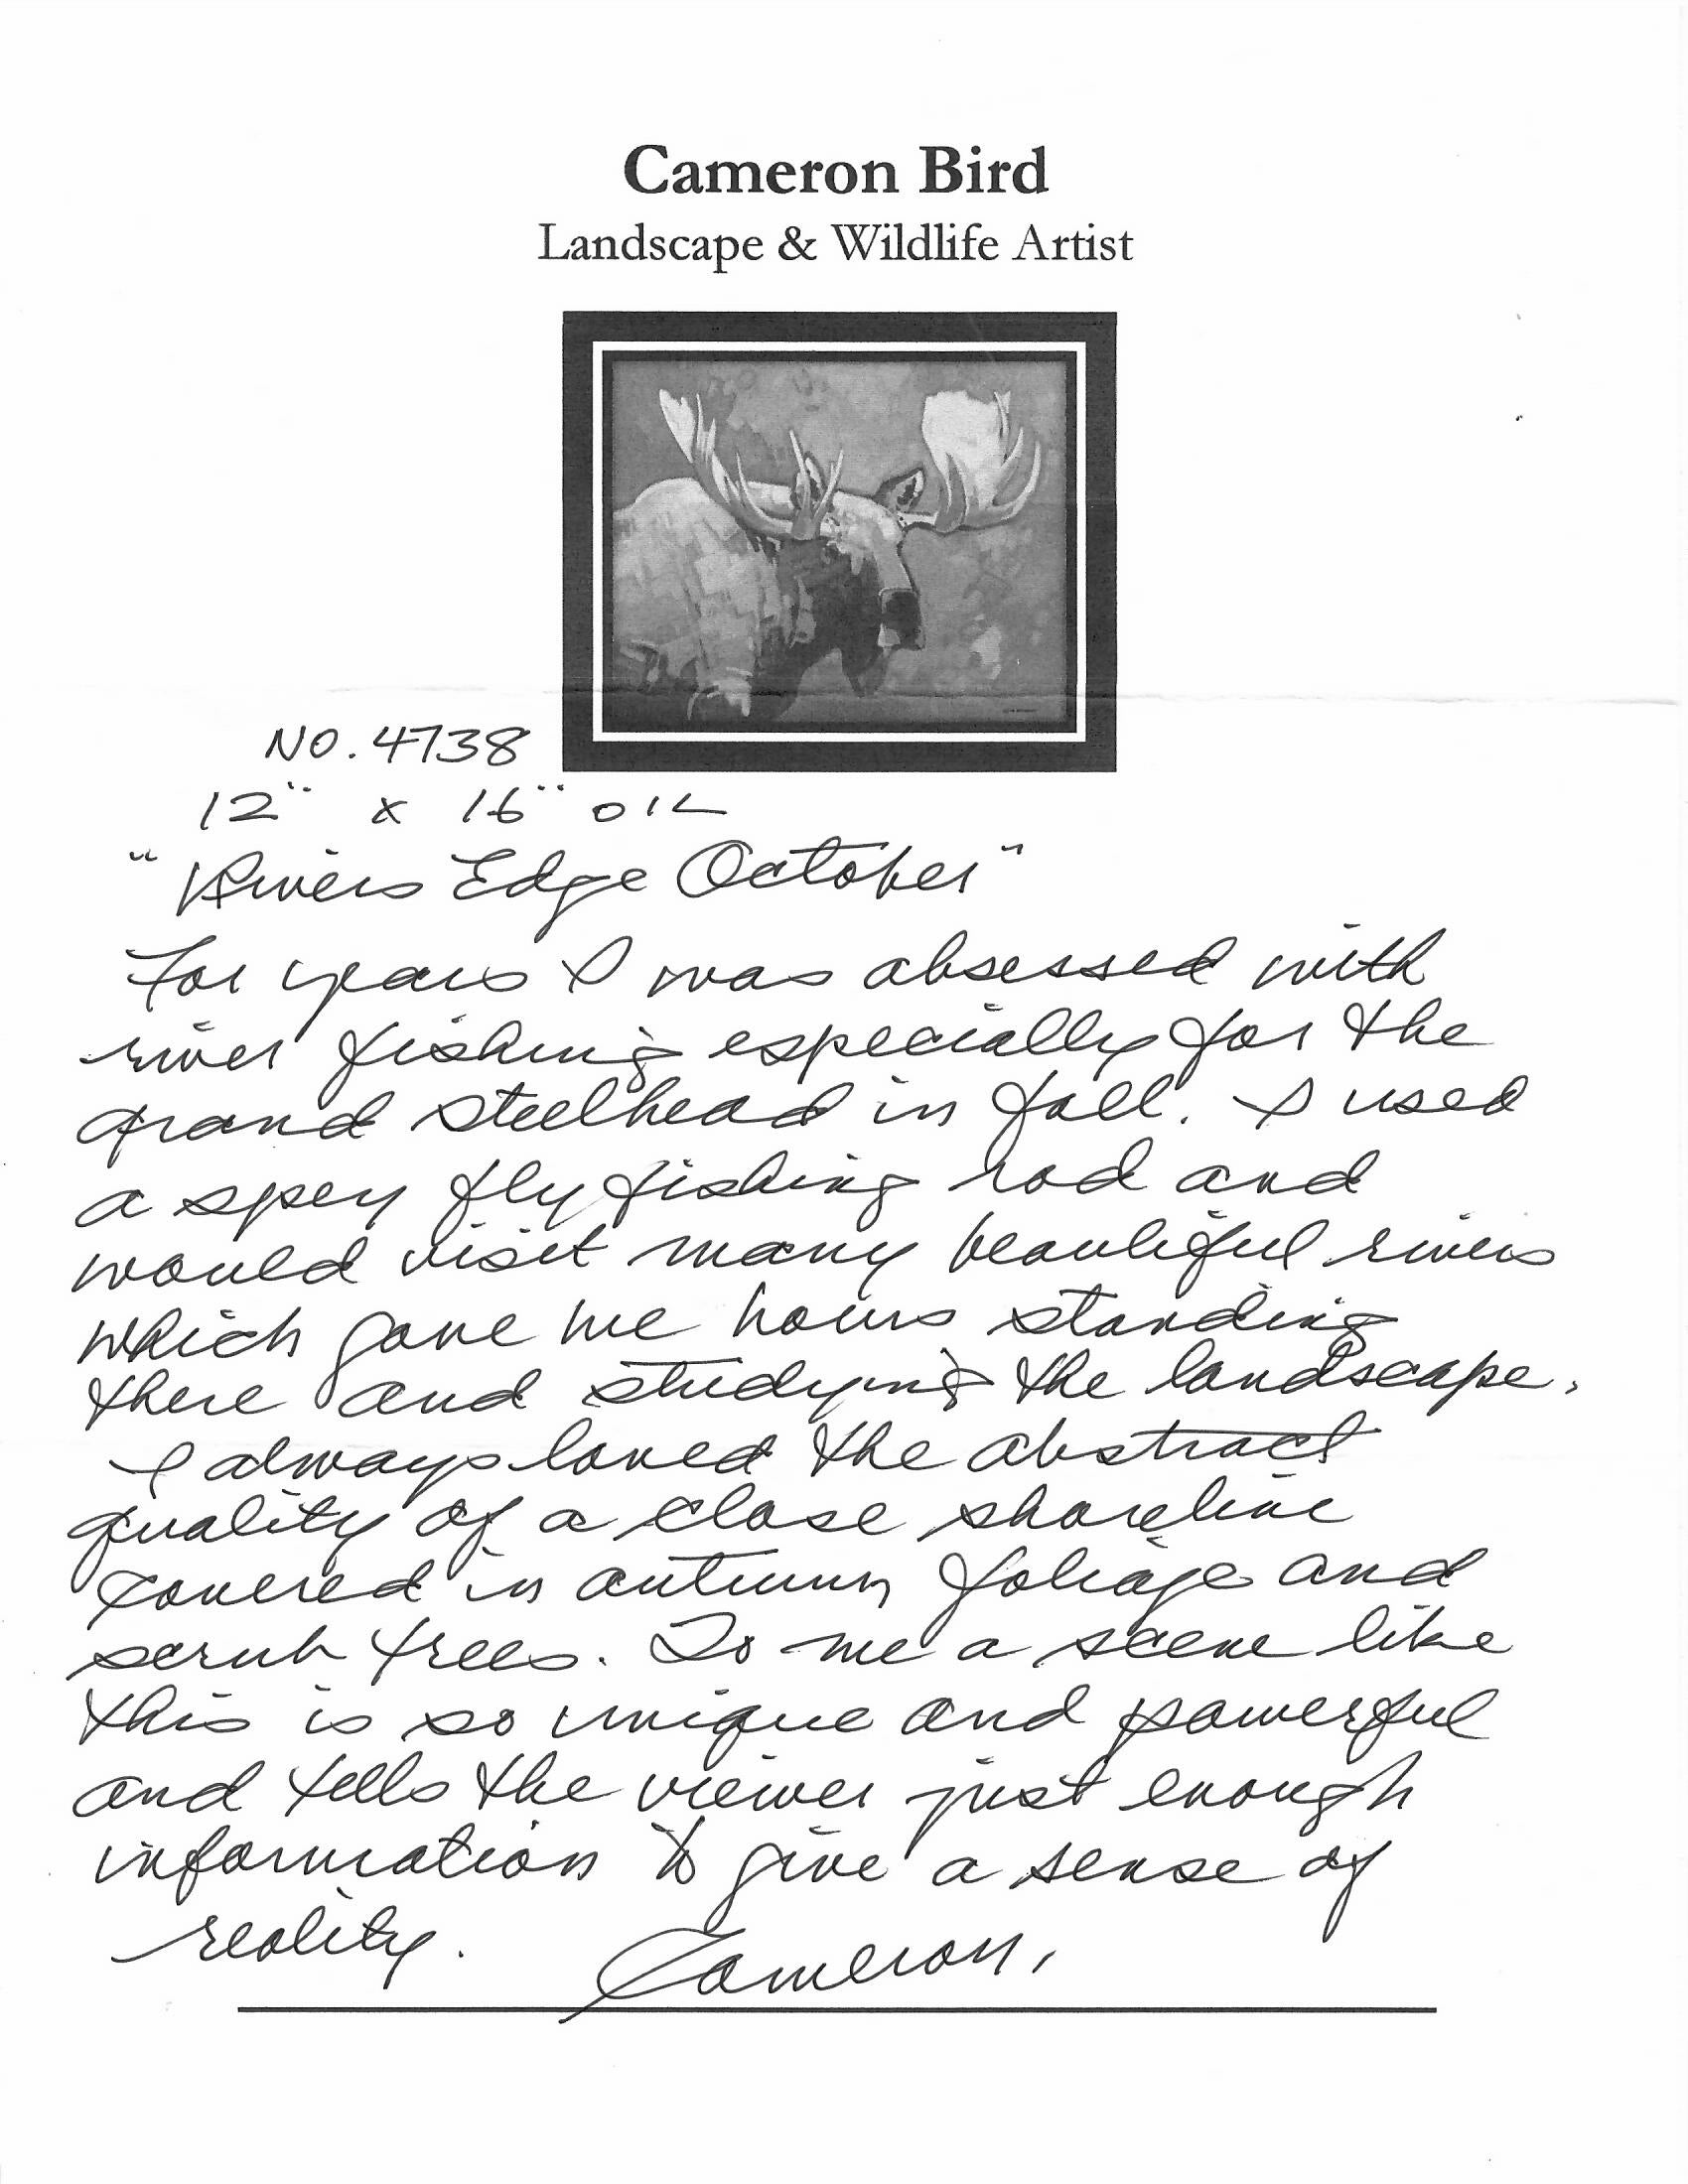 Cameron Bird
Landscape & Wildlife Artist
NO. 4738
12" x 16" OIL
"Rivers Edge October"
For years I was obsessed with
river fishing especially for the
grand steelhead in fall. I used
a spey fly fishing rod and
would visit many beautiful rivers
which gave me hours standing
there and studying the landscape.
I always loved the abstract
quality of a close shoreline
covered in autumn foliage and
scrub trees. To me a scene like
this is so unique and powerful
and tells the viewer just enough
information to give a sense of
reality. Cameron.